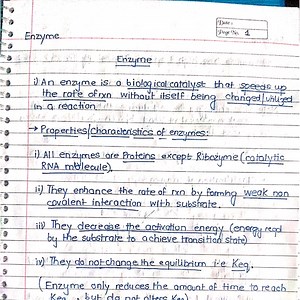 Date:
Page No. 1
Enzyme
Enzyme
i) An enzyme is a biological catalyst that speeds up
the rate of rxn without itself being changed/utilized
in a reaction
→ Properties/characteristics of enzymes:
i) All enzymes are Proteins except Ribozyme (catalytic
RNA molecule).
ii) They enhance the rate of rxn by forming weak non
covalent interaction with substrate.
iii) They decrease the activation energy (energy reqd
by the substrate to achieve transition state)
iv) They do not change the equilibrium i.e Keq.
(Enzyme only reduces the amount of time to reach
Keq, but do not alters Keq)